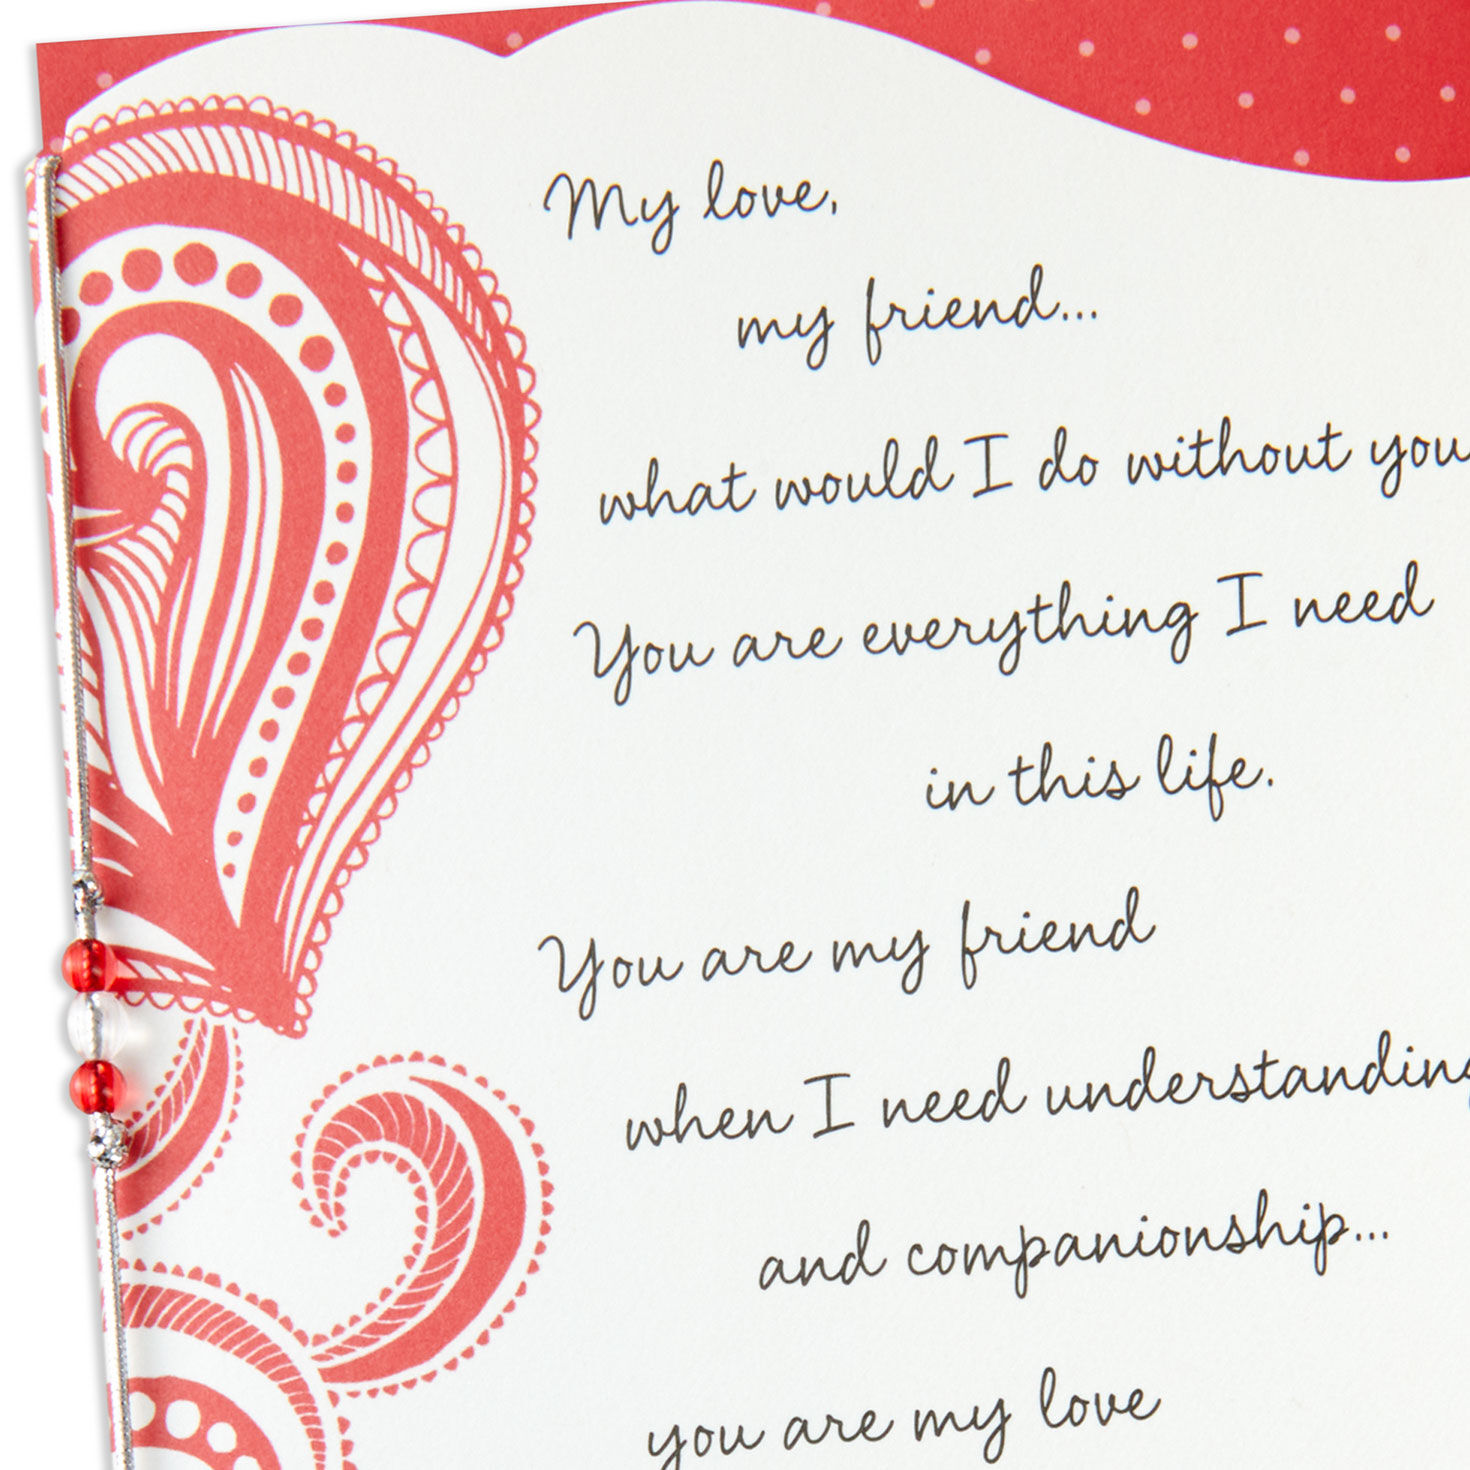 My love,
my friend...
what would I do without you
You are everything I need
in this life.
You are my friend
when I need understanding
and companionship...
you are my love